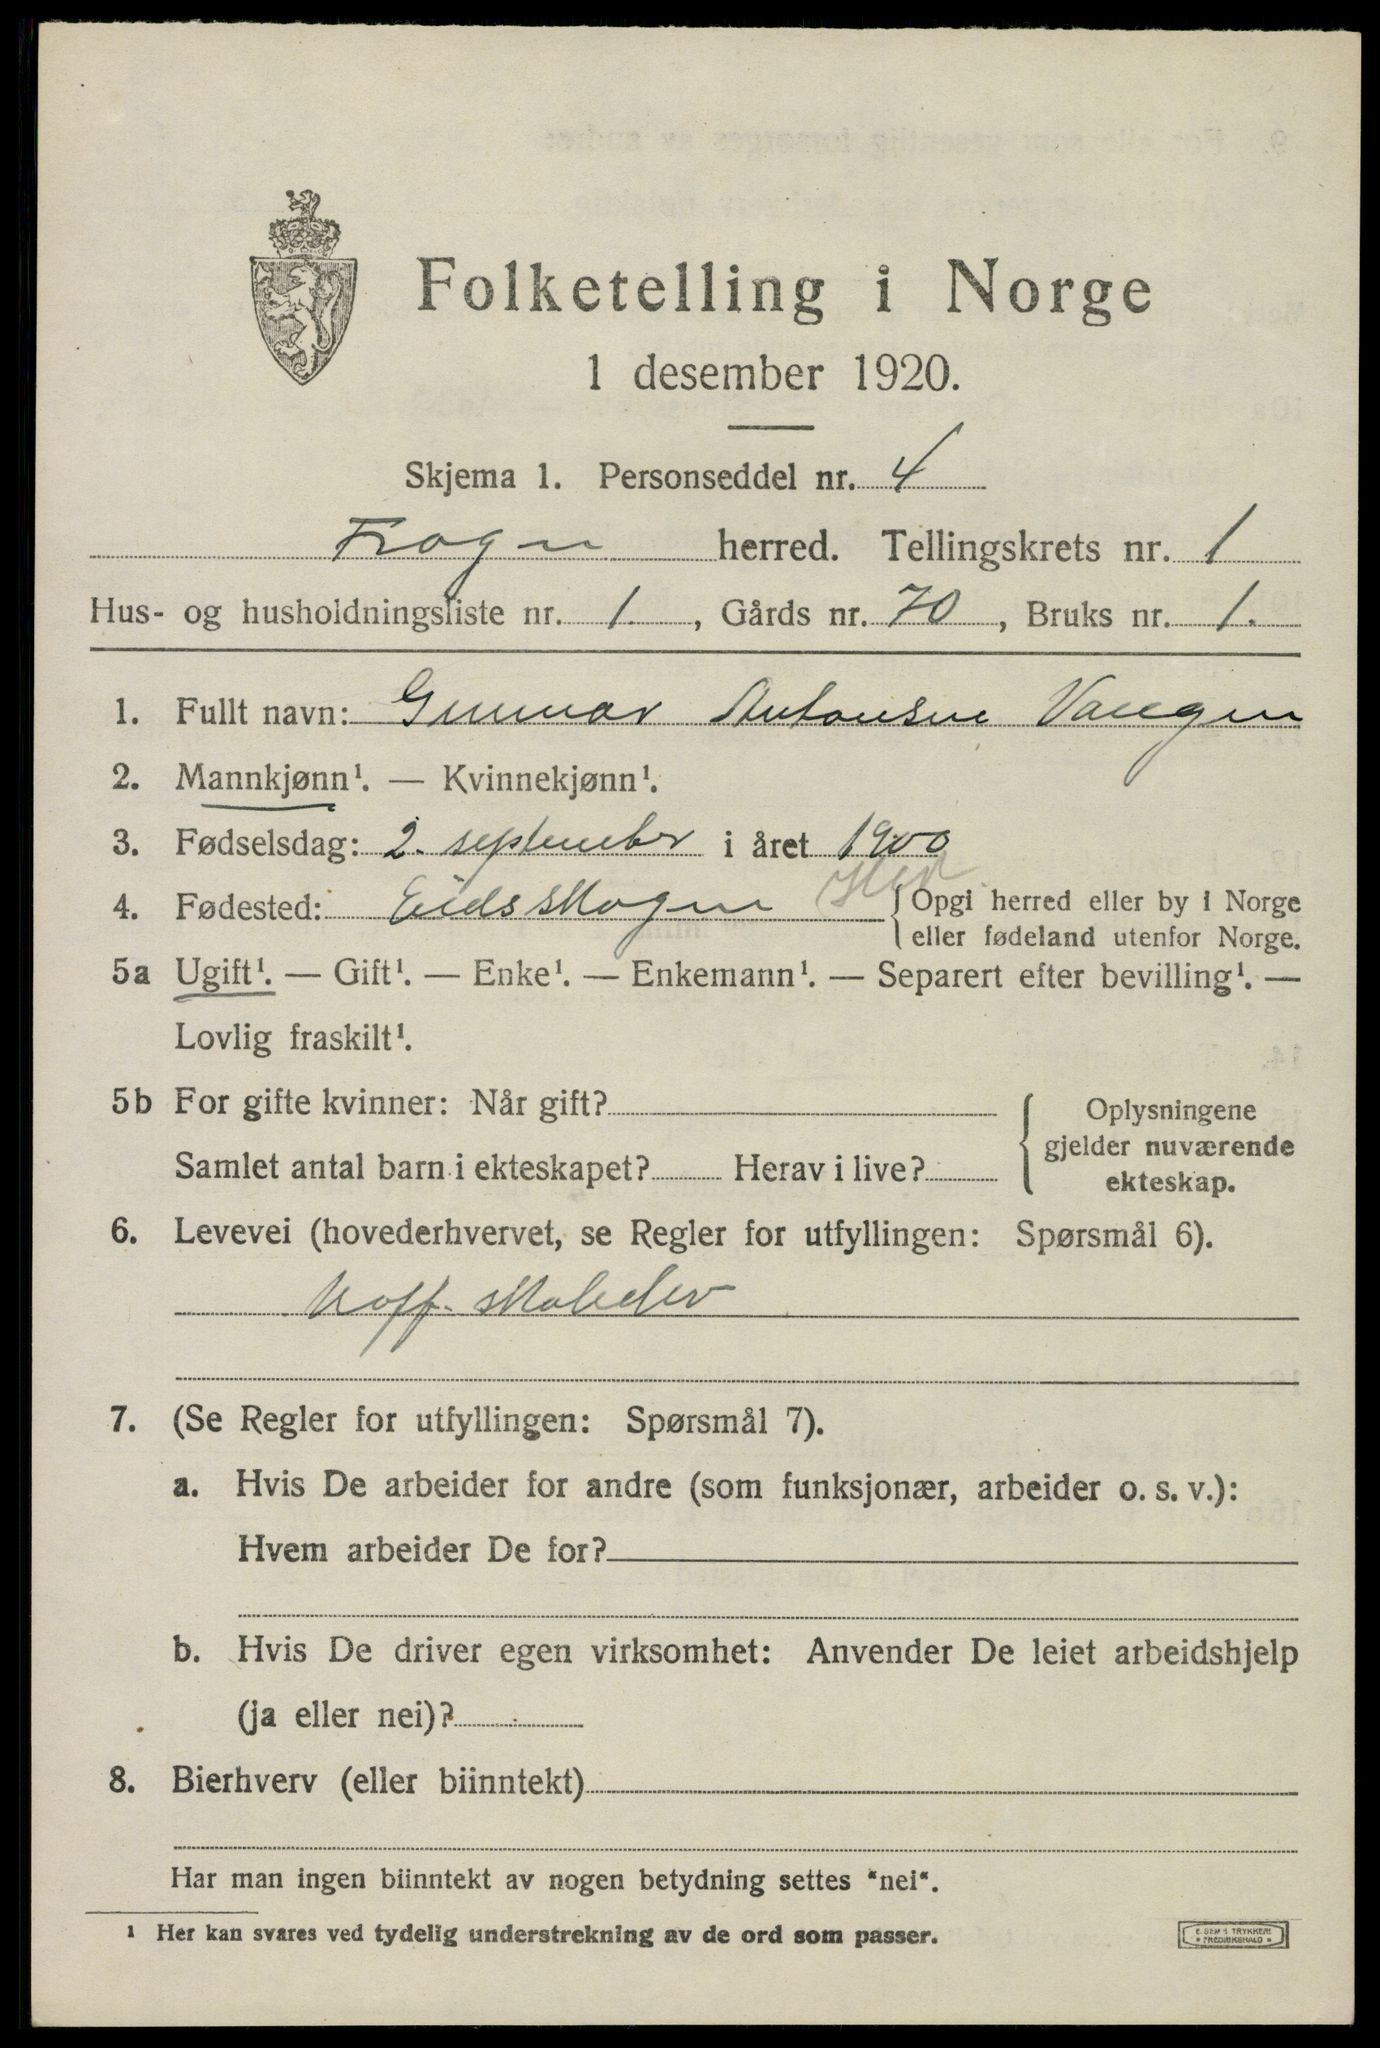 Folketelling i Norge
1 desember 1920.
Skjema 1. Personseddel nr. 4
Frogn herred. Tellingskrets nr. 1
Hus- og husholdningsliste nr. 1. , Gårds nr. 70 , Bruks nr. 1.
1. Fullt navn: Gunnar Antonsen Vangen
2. Mannkjønn¹. — Kvinnekjønn¹.
3. Fødselsdag: 2. september i året 1900
4. Fødested: Eidsskogen Hed. { Opgi herred eller by i Norge
eller fødeland utenfor Norge.
5a Ugift¹. — Gift¹. — Enke¹. — Enkemann¹. — Separert efter bevilling¹. —
Lovlig fraskilt¹.
5b For gifte kvinner: Når gift?
Samlet antal barn i ekteskapet? Herav i live?
{ Oplysningene
gjelder nuværende
ekteskap.
6. Levevei (hovederhvervet, se Regler for utfyllingen: Spørsmål 6).
7. (Se Regler for utfyllingen: Spørsmål 7).
a. Hvis De arbeider for andre (som funksjonær, arbeider o. s. v.):
Hvem arbeider De for?
b. Hvis De driver egen virksomhet: Anvender De leiet arbeidshjelp
(ja eller nei)?
8. Bierhverv (eller biinntekt)
Har man ingen biinntekt av nogen betydning settes "nei".
¹ Her kan svares ved tydelig understrekning av de ord som passer.
E. SEM'S TRYKKERI
FREDRIKSHALD